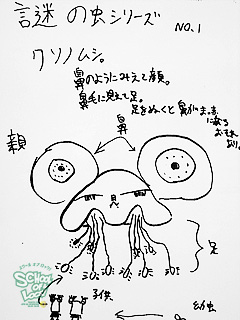 謎の虫シリーズ
NO.1
クソノムシ。
鼻のようにみえて顔。
鼻毛に見えて足。
足をぬくと鼻がまっ赤
になる
おそれ
あり。
鼻
親
足
子供
幼虫